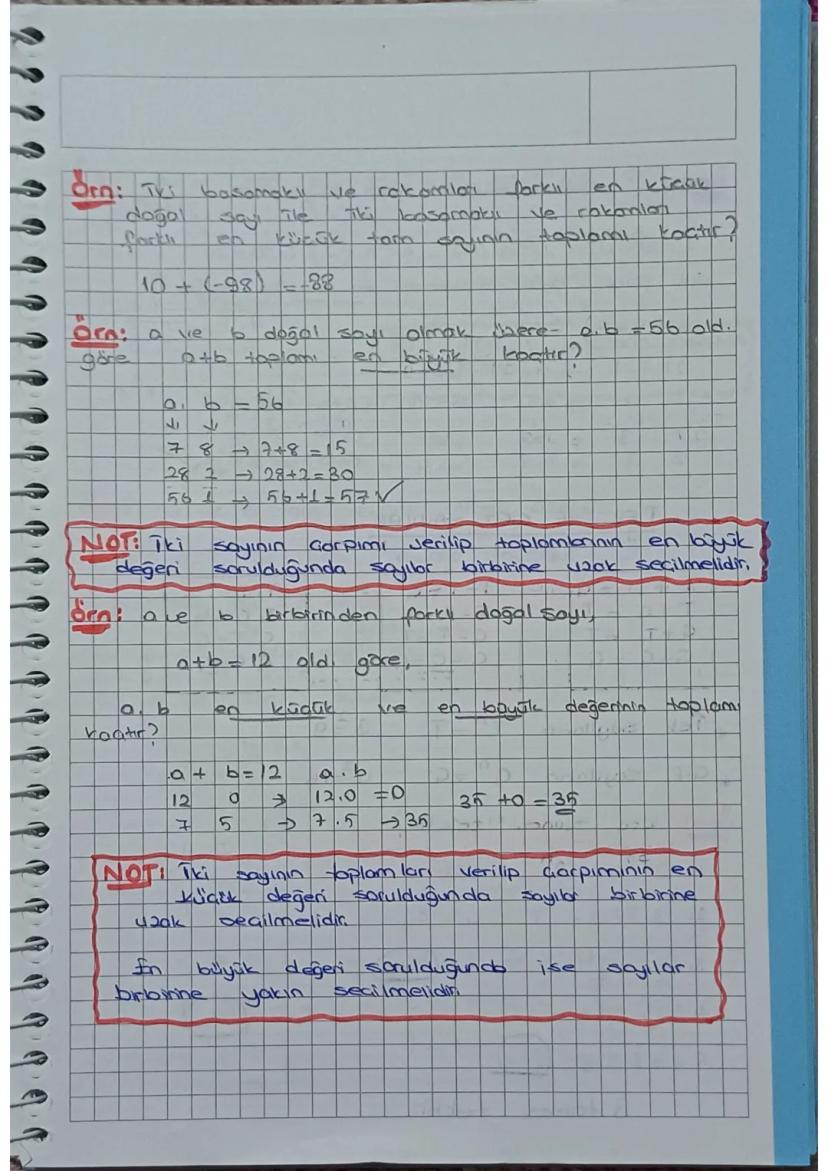 Örn: İki basamaklı ve rakamları farklı en küçük
doğal sayı ile iki basamaklı ve rakamları
farklı en küçük tam sayının toplamı kaçtır?
10 + (-98) = -88
Örn: a ve b doğal sayı olmak üzere a.b = 56 old.
göre a+b toplamı en büyük kaçtır?
a. b = 56
↓ ↓
7 8 → 7+8 = 15
28 2 → 28+2 = 30
56 1 → 56+1 = 57 ✓
NOT: İki sayının çarpımı verilip toplamlarının en büyük
değeri sorulduğunda sayılar birbirine uzak seçilmelidir.
Örn: a ve b birbirinden farklı doğal sayı,
a+b = 12 old. göre,
a. b en küçük ve en büyük değerinin toplamı
kaçtır?
a + b = 12 a . b
12 0 → 12.0 = 0 35 + 0 = 35
7 5 → 7 . 5 → 35
NOT: İki sayının toplamları verilip çarpımının en
küçük değeri sorulduğunda sayılar birbirine
uzak seçilmelidir.
En büyük değeri sorulduğunda ise sayılar
birbirine yakın seçilmelidir.